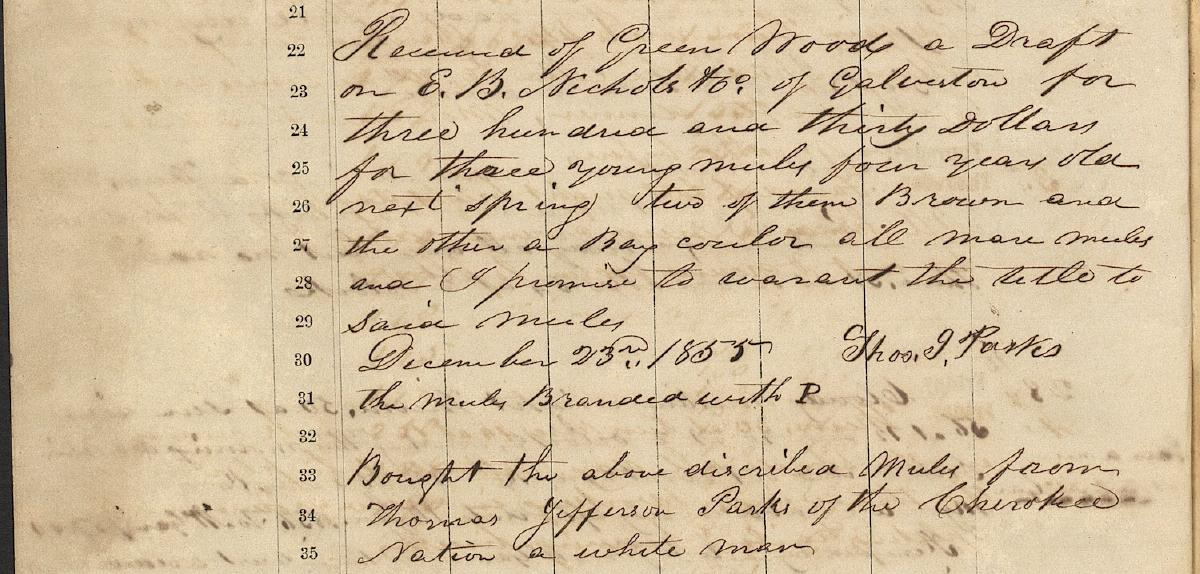 21
22 Received of Green Woods a Draft
23 on E. B. Nichols &Co. of Galveston for
24 three hundred and thirty Dollars
25 for three young mules four years old
26 next spring two of them Brown and
27 the other a Bay coulor all mare mules
28 and I promise to warant the title to
29 said mules
30 December 23rd, 1855 Thos. J. Parks
31 the mules Branded with P
32
33 Bought the above discribed Mules from
34 Thomas Jefferson Parks of the Cherokee
35 Nation a white man